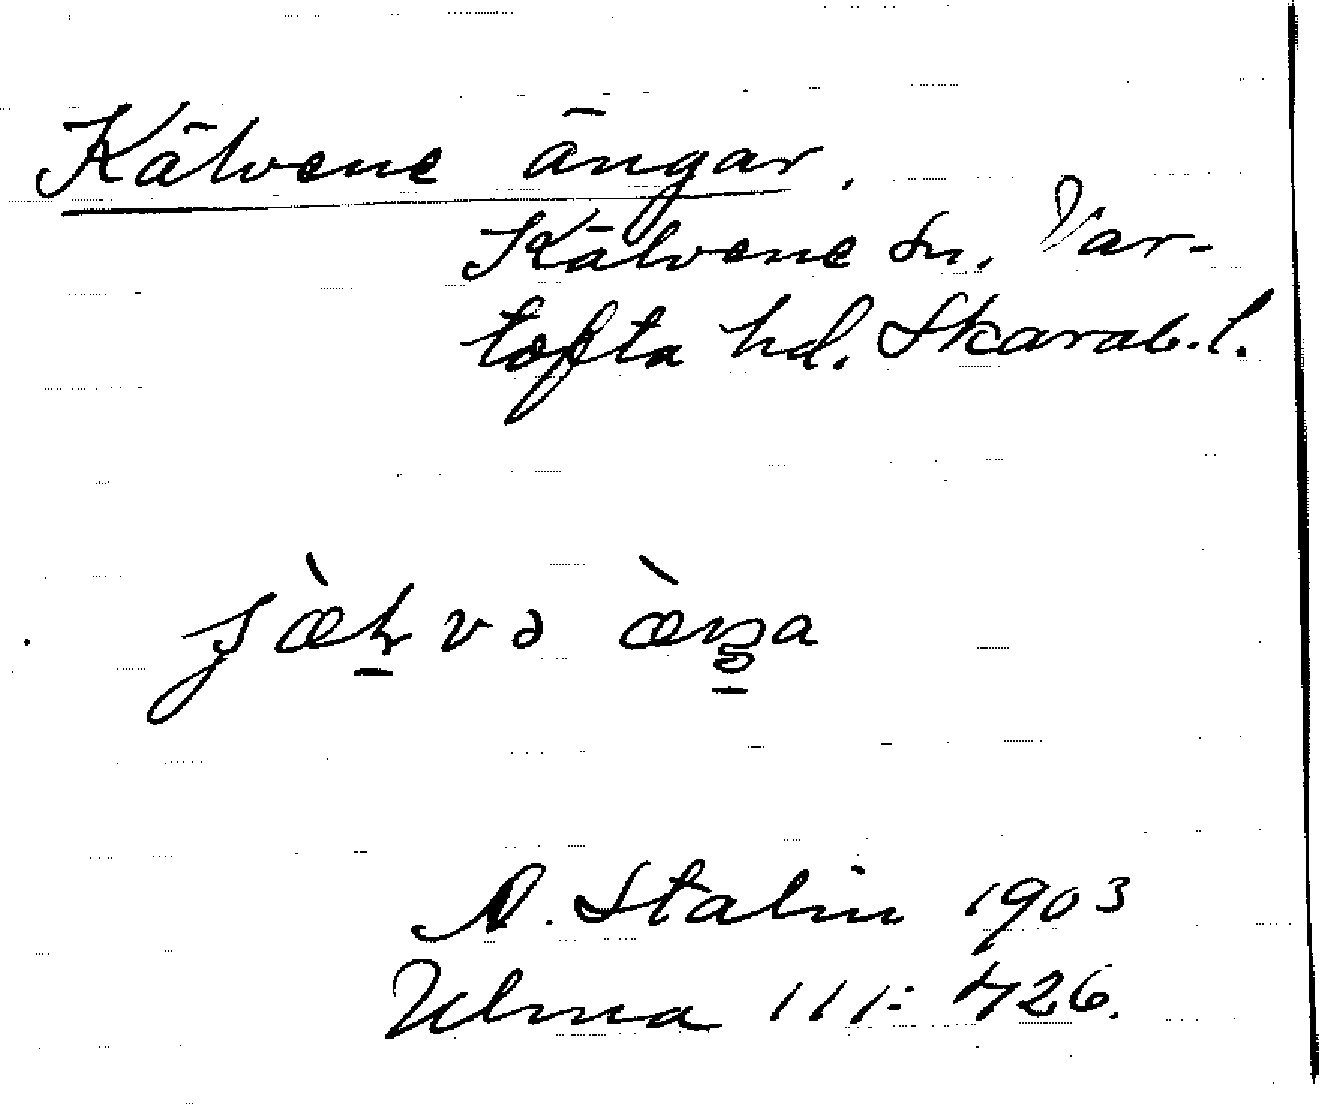 Kälvene ängar.
Kälvene sn. Var-
tofta hd. Skarab. l.
A. Stalin 1903
Ulma 111: 426.